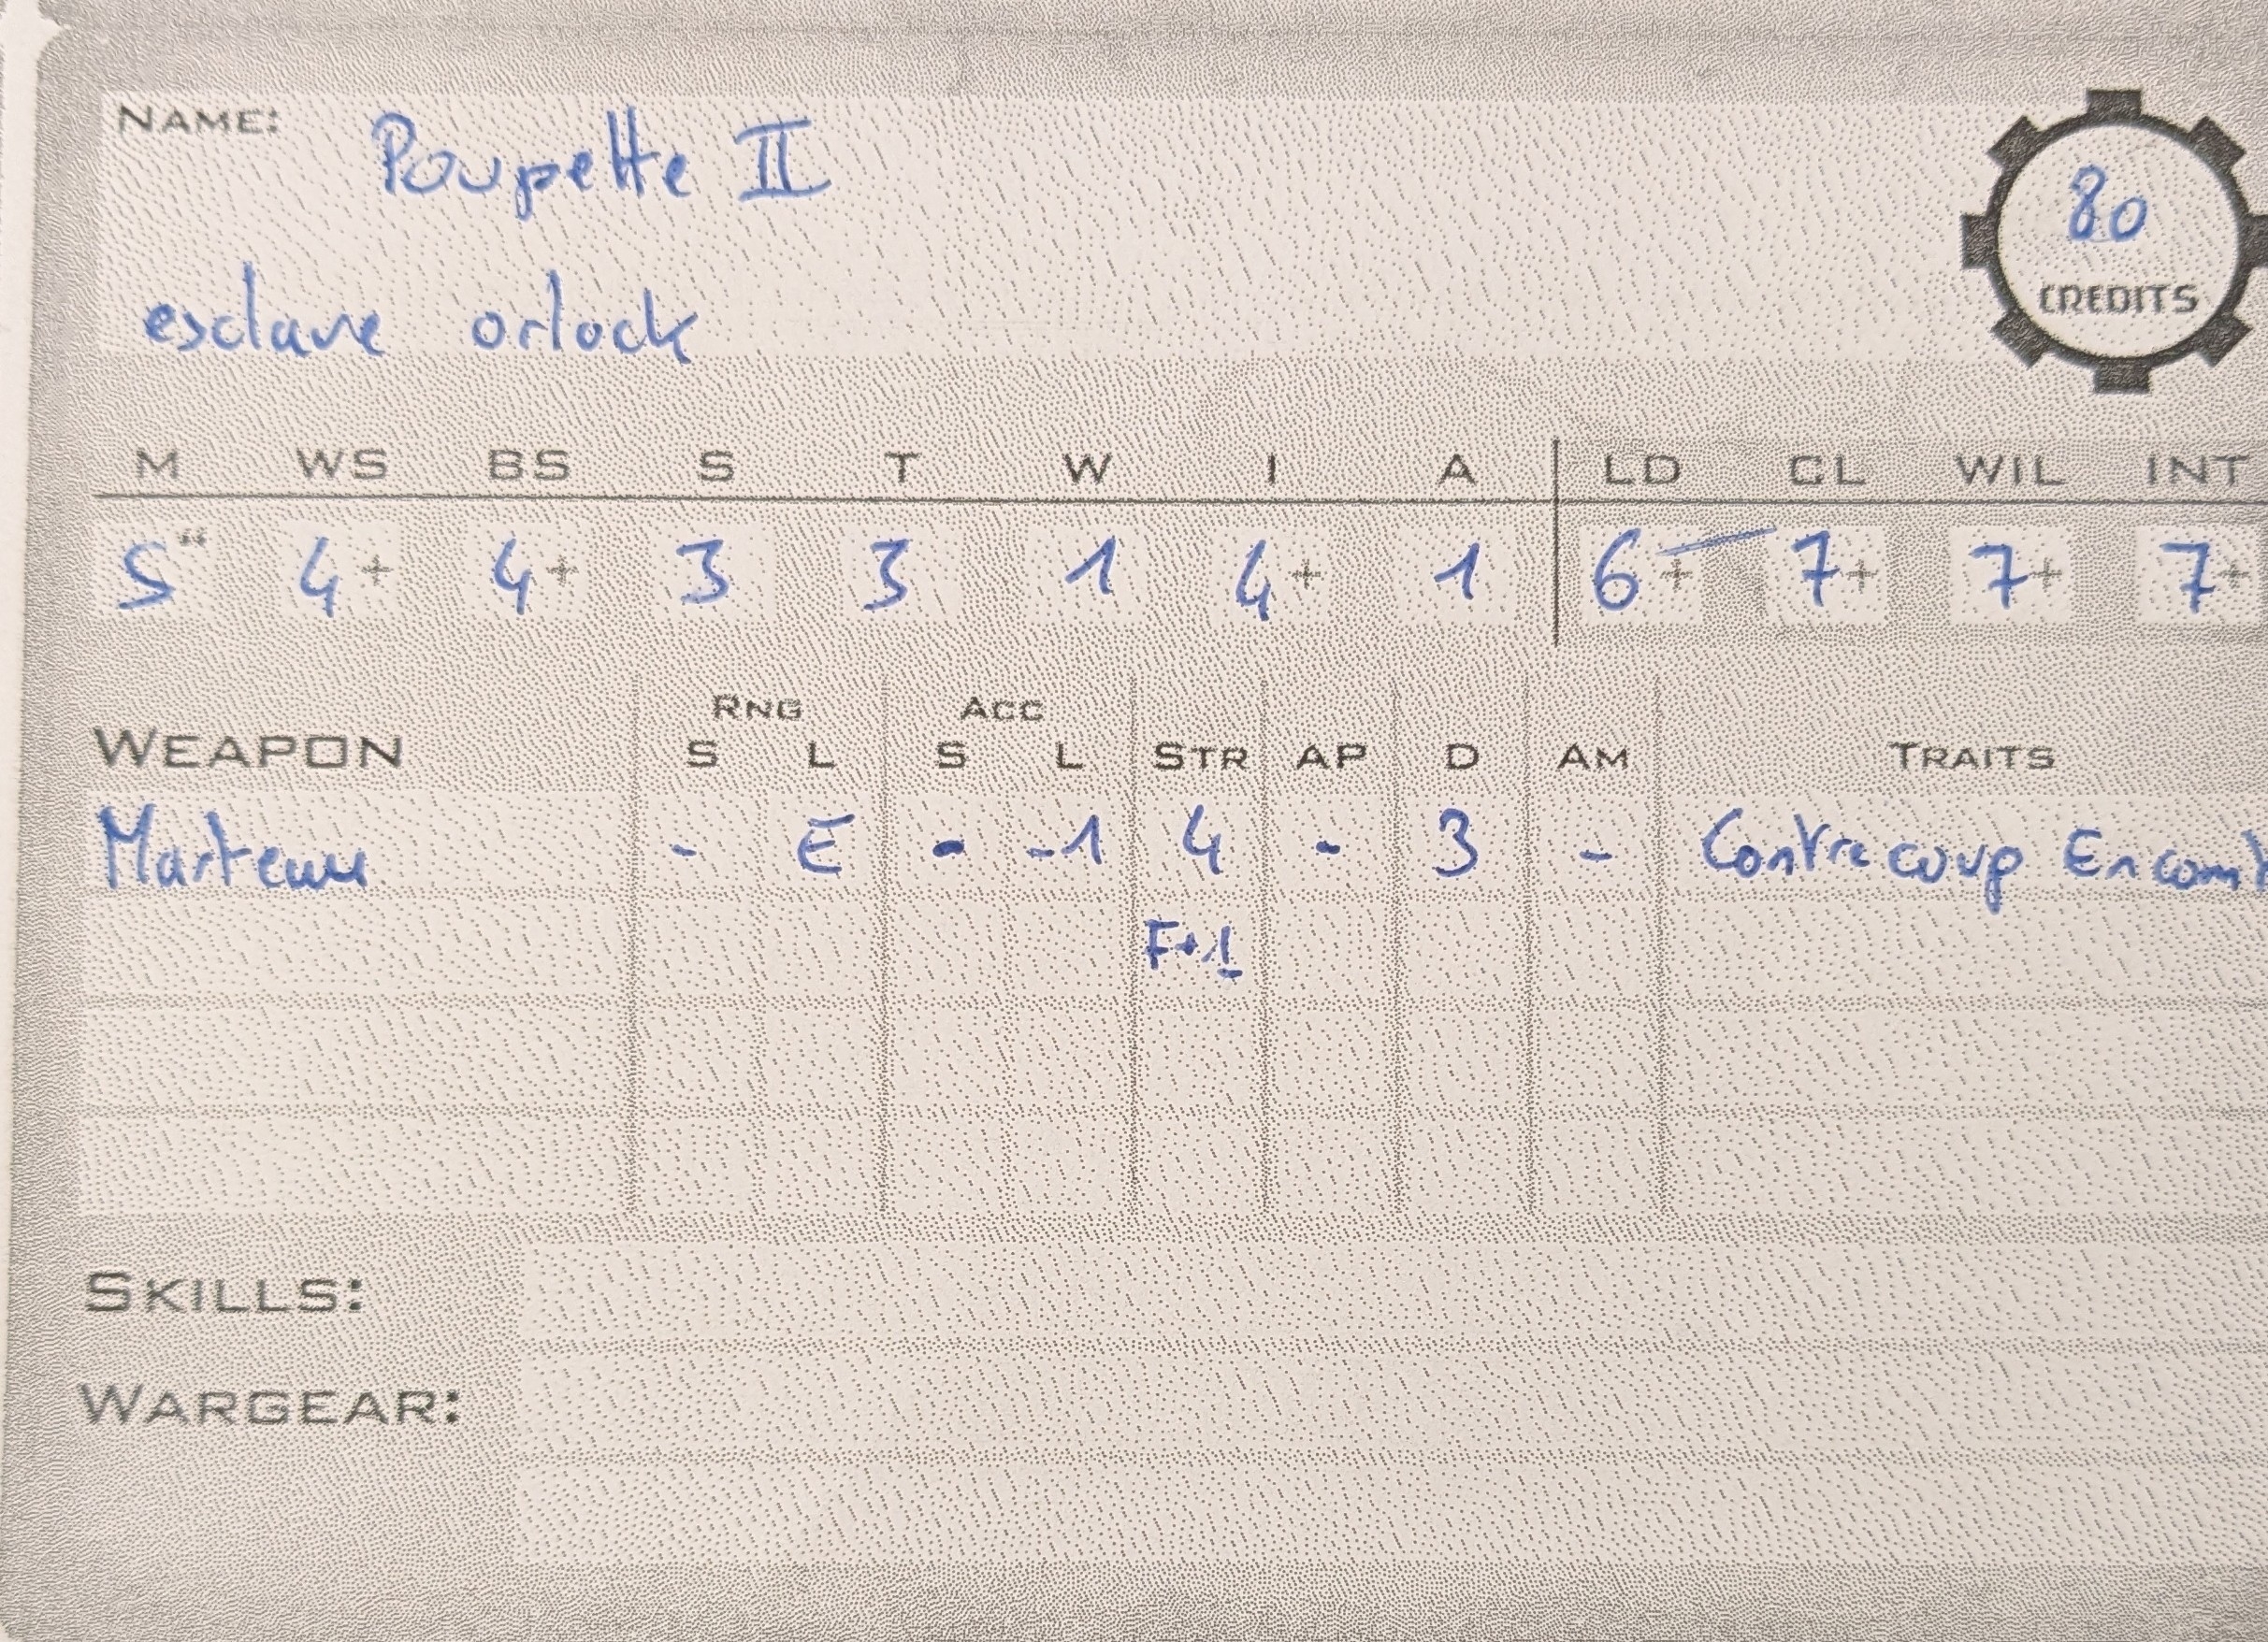 NAME: Poupette II
80
CREDITS
esclave orlock
M WS BS S T W I A LD CL WIL INT
5" 4+ 4+ 3 3 1 4+ 1 6+ 7+ 7+ 7+
RNG ACC
WEAPON S L S L STR AP D AM TRAITS
Marteau - E - -1 4 - 3 - Contrecoup Encomb
F+1
SKILLS:
WARGEAR: